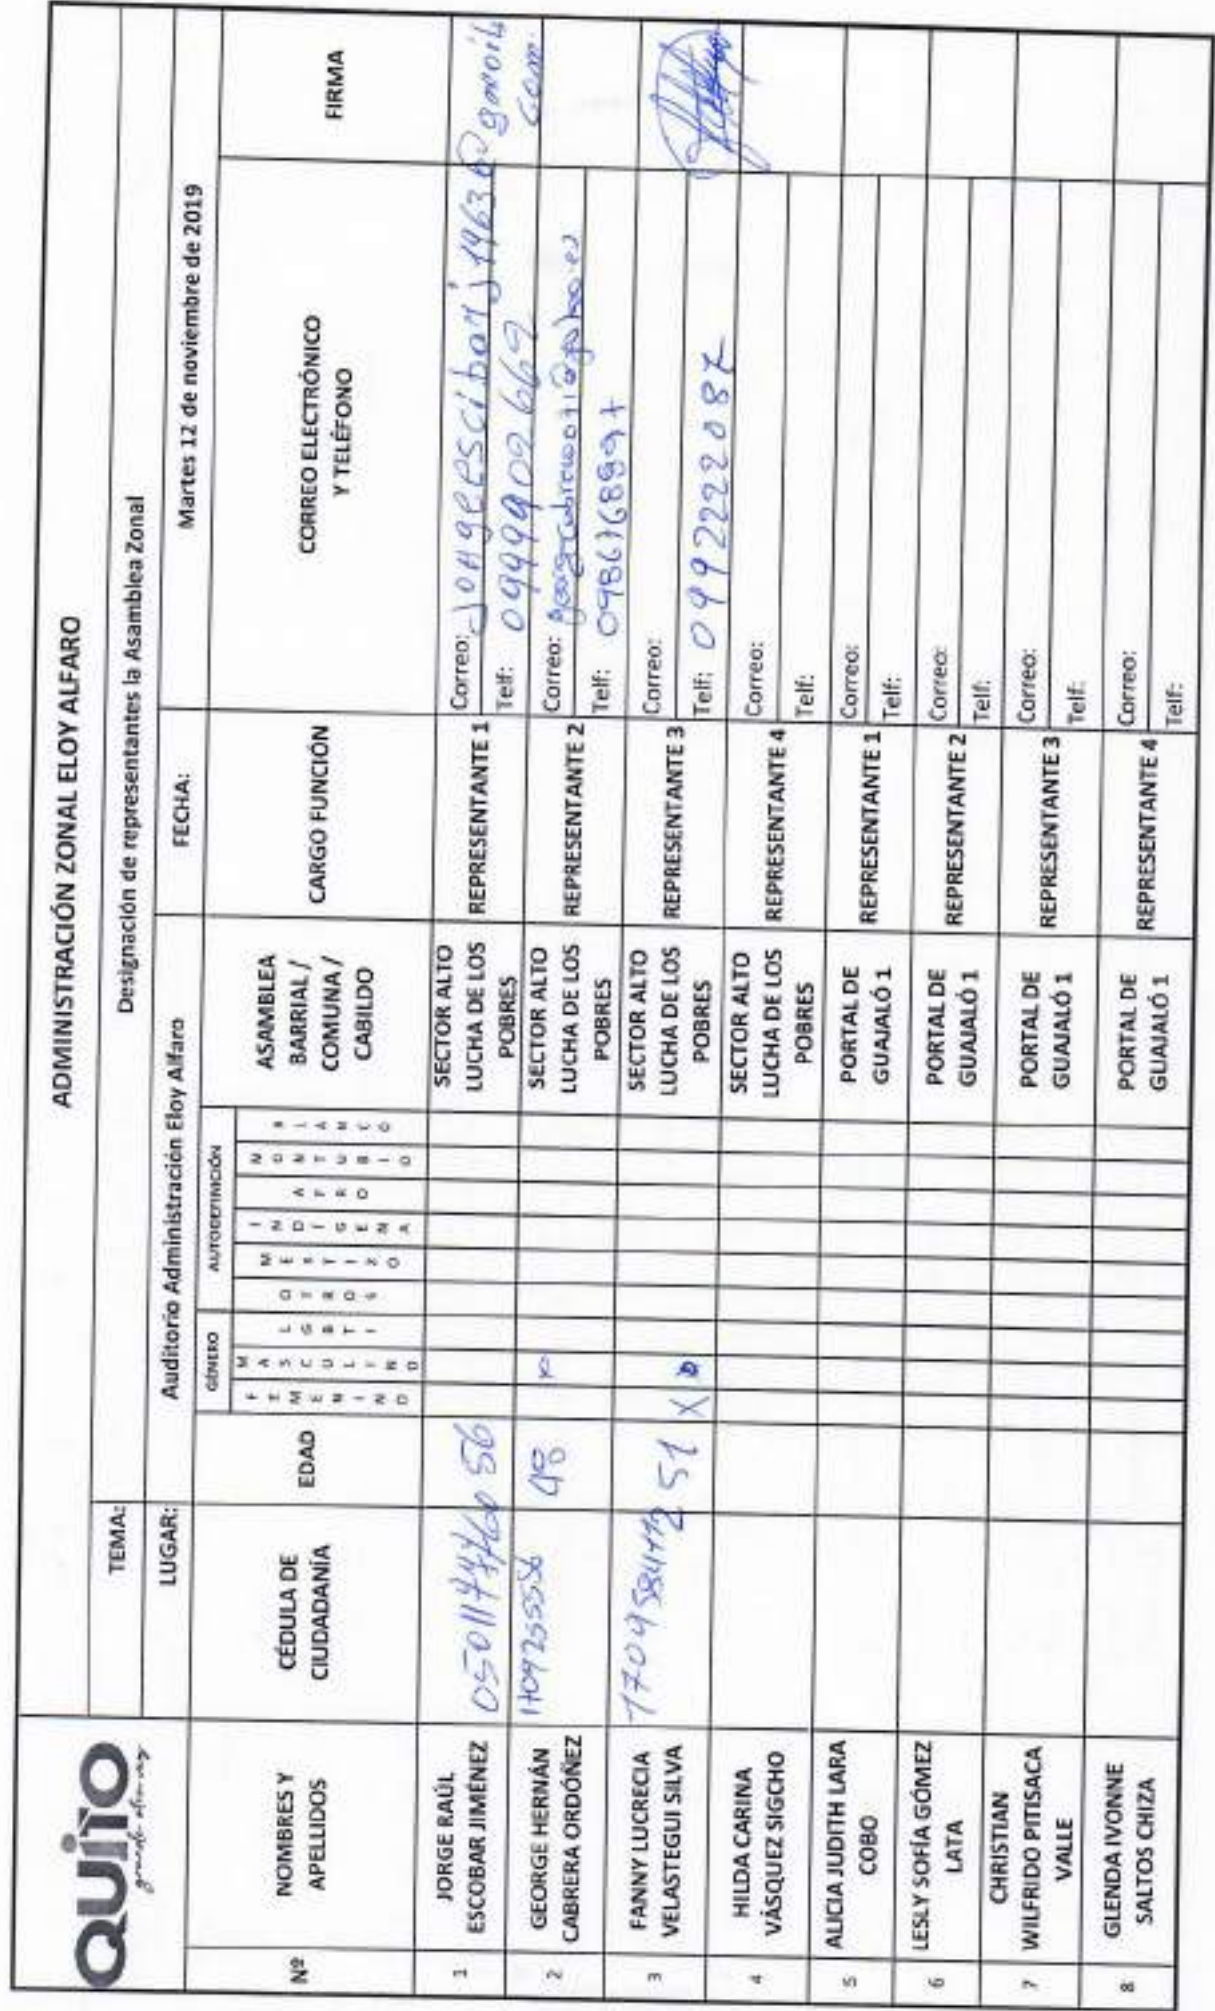 QUITO
grande otra vez
ADMINISTRACIÓN ZONAL ELOY ALFARO
TEMA: Designación de representantes la Asamblea Zonal
LUGAR: Auditorio Administración Eloy Alfaro FECHA: Martes 12 de noviembre de 2019
Nº
NOMBRES Y
APELLIDOS
CÉDULA DE
CIUDADANÍA
EDAD
GÉNERO
FEMENINO
MASCULINO
LGBTI
AUTODEFINICIÓN
OTROS
MESTIZO
INDIGENA
AFRO
MONTUBIO
BLANCO
ASAMBLEA
BARRIAL /
COMUNA /
CABILDO
CARGO FUNCIÓN
CORREO ELECTRÓNICO
Y TELÉFONO
FIRMA
1
JORGE RAÚL
ESCOBAR JIMÉNEZ
56
SECTOR ALTO
LUCHA DE LOS
POBRES
REPRESENTANTE 1
Correo:
Telf: 0999902669
2
GEORGE HERNÁN
CABRERA ORDÓÑEZ
1709255556
48
SECTOR ALTO
LUCHA DE LOS
POBRES
REPRESENTANTE 2
Correo:
Telf:
3
FANNY LUCRECIA
VELASTEGUI SILVA
51
X
SECTOR ALTO
LUCHA DE LOS
POBRES
REPRESENTANTE 3
Correo:
Telf: 0992222087
4
HILDA CARINA
VÁSQUEZ SIGCHO
SECTOR ALTO
LUCHA DE LOS
POBRES
REPRESENTANTE 4
Correo:
Telf:
5
ALICIA JUDITH LARA
COBO
PORTAL DE
GUAJALÓ 1
REPRESENTANTE 1
Correo:
Telf:
6
LESLY SOFÍA GÓMEZ
LATA
PORTAL DE
GUAJALÓ 1
REPRESENTANTE 2
Correo:
Telf:
7
CHRISTIAN
WILFRIDO PITISACA
VALLE
PORTAL DE
GUAJALÓ 1
REPRESENTANTE 3
Correo:
Telf:
8
GLENDA IVONNE
SALTOS CHIZA
PORTAL DE
GUAJALÓ 1
REPRESENTANTE 4
Correo:
Telf: